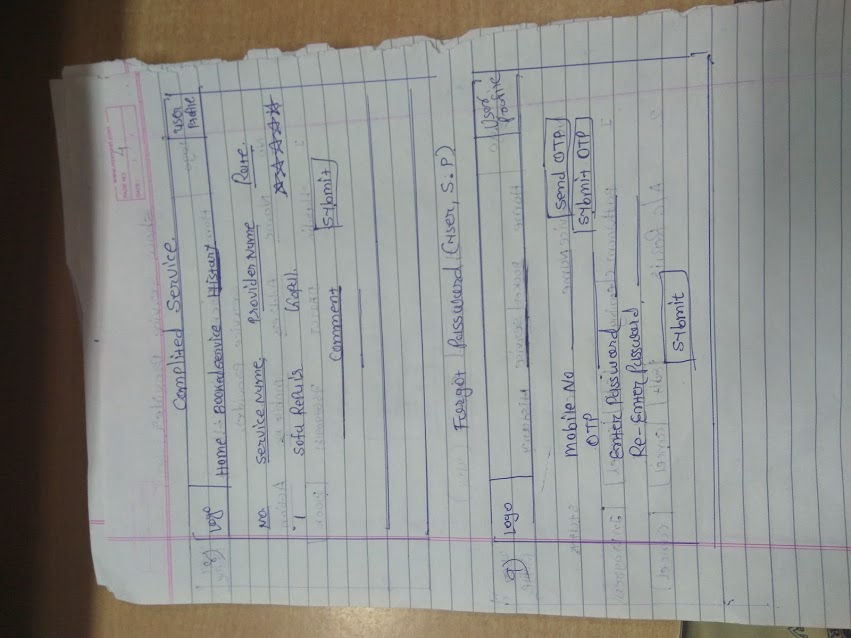 Page No. 4
Date
Complited Service.
8) Logo User Profile
Home Booked service History
No. Service Name Provider Name Rate.
1 Sofa Repair ☆☆☆☆☆
Comment Sybmit
Forgot Password (User, S.P)
9) Logo User Profile
Mobile No Send OTP
OTP Sybmit OTP
Enter Password
Re-Enter Password
Sybmit